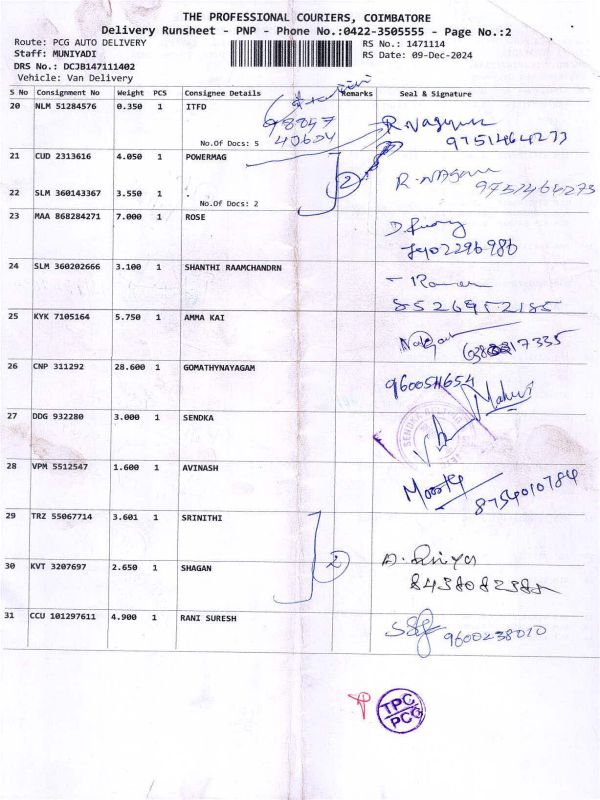 THE PROFESSIONAL COURIERS, COIMBATORE
Delivery Runsheet - PNP - Phone No.:0422-3505555 - Page No.:2
Route: PCG AUTO DELIVERY
RS No.: 1471114
Staff: MUNIYADI
RS Date: 09-Dec-2024
DRS No.: DCJB147111402
Vehicle: Van Delivery
S No Consignment No Weight PCS Consignee Details Remarks Seal & Signature
20 NLM 51284576 0.350 1 ITFD
No.Of Docs: 5
98847
40604
R. Nagguu
9751464273
21 CUD 2313616 4.050 1 POWERMAG
2
R. NAGUU
9751464273
22 SLM 360143367 3.550 1
No.Of Docs: 2
23 MAA 868284271 7.000 1 ROSE
24 SLM 360202666 3.100 1 SHANTHI RAAMCHANDRN
8526952185
25 KYK 7105164 5.750 1 AMMA KAI
26 CNP 311292 28.600 1 GOMATHYNAYAGAM
9600511654
27 DDG 932280 3.000 1 SENDKA
SENDKA
28 VPM 5512547 1.600 1 AVINASH
8754010784
29 TRZ 55067714 3.601 1 SRINITHI
2
30 KVT 3207697 2.650 1 SHAGAN
31 CCU 101297611 4.900 1 RANI SURESH
9600238010
TPC
PCG